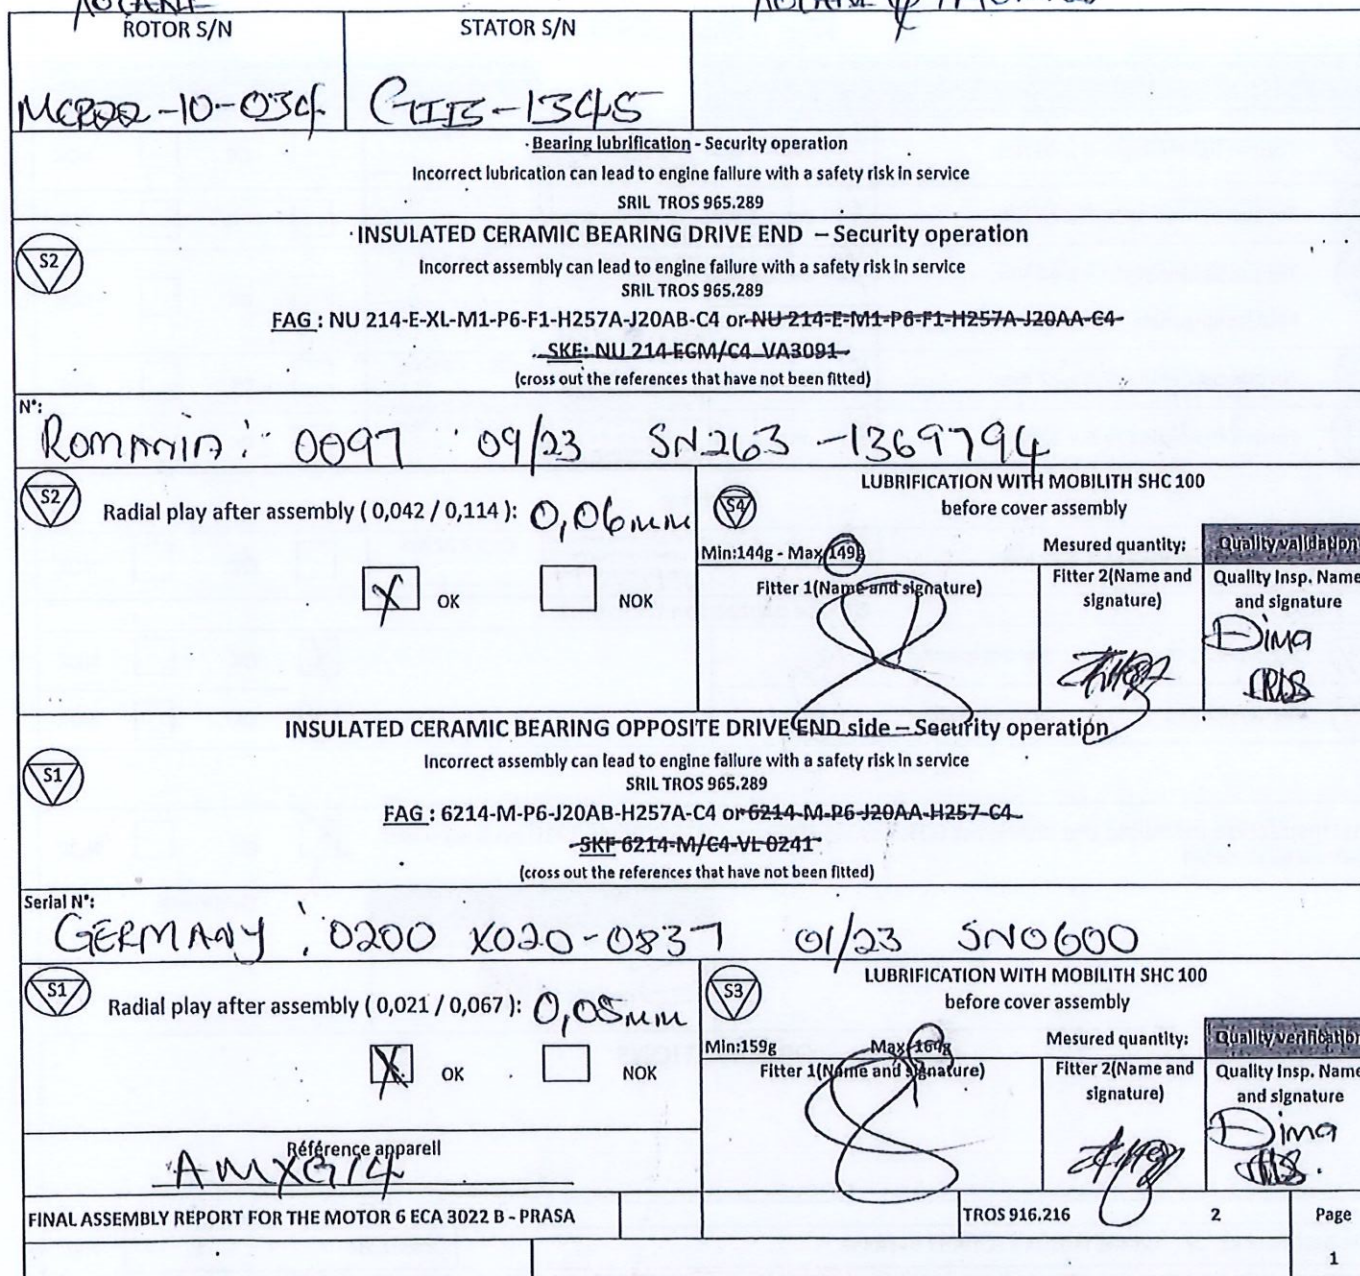 ROTOR S/N
STATOR S/N
MCR22-10-034
GIIB-1345
Bearing lubrification - Security operation
Incorrect lubrication can lead to engine failure with a safety risk in service
SRIL TROS 965.289
S2
INSULATED CERAMIC BEARING DRIVE END – Security operation
Incorrect assembly can lead to engine failure with a safety risk in service
SRIL TROS 965.289
FAG : NU 214-E-XL-M1-P6-F1-H257A-J20AB-C4 or NU 214-E-M1-P6-F1-H257A-J20AA-C4
SKF: NU 214-EGM/C4 VA3091
(cross out the references that have not been fitted)
N°:
ROMANIA: 0097 09/23 SN263 -1369794
S2
Radial play after assembly ( 0,042 / 0,114 ): 0,06mm
OK
NOK
S4
LUBRIFICATION WITH MOBILITH SHC 100
before cover assembly
Min:144g - Max:149g
Mesured quantity:
Quality validation
Fitter 1(Name and signature)
Fitter 2(Name and signature)
Quality Insp. Name and signature
Dima
INSULATED CERAMIC BEARING OPPOSITE DRIVE END side – Security operation
S1
Incorrect assembly can lead to engine failure with a safety risk in service
SRIL TROS 965.289
FAG : 6214-M-P6-J20AB-H257A-C4 or 6214-M-P6-J20AA-H257-C4
SKF 6214-M/C4-VL0241
(cross out the references that have not been fitted)
Serial N°:
GERMANY : 0200 X020-0837 01/23 SN0600
S1
Radial play after assembly ( 0,021 / 0,067 ): 0,05mm
OK
NOK
S3
LUBRIFICATION WITH MOBILITH SHC 100
before cover assembly
Min:159g
Max:164g
Mesured quantity:
Quality verification
Fitter 1(Name and signature)
Fitter 2(Name and signature)
Quality Insp. Name and signature
Dima
Référence appareil
AMXG14
FINAL ASSEMBLY REPORT FOR THE MOTOR 6 ECA 3022 B - PRASA
TROS 916.216
2
Page
1